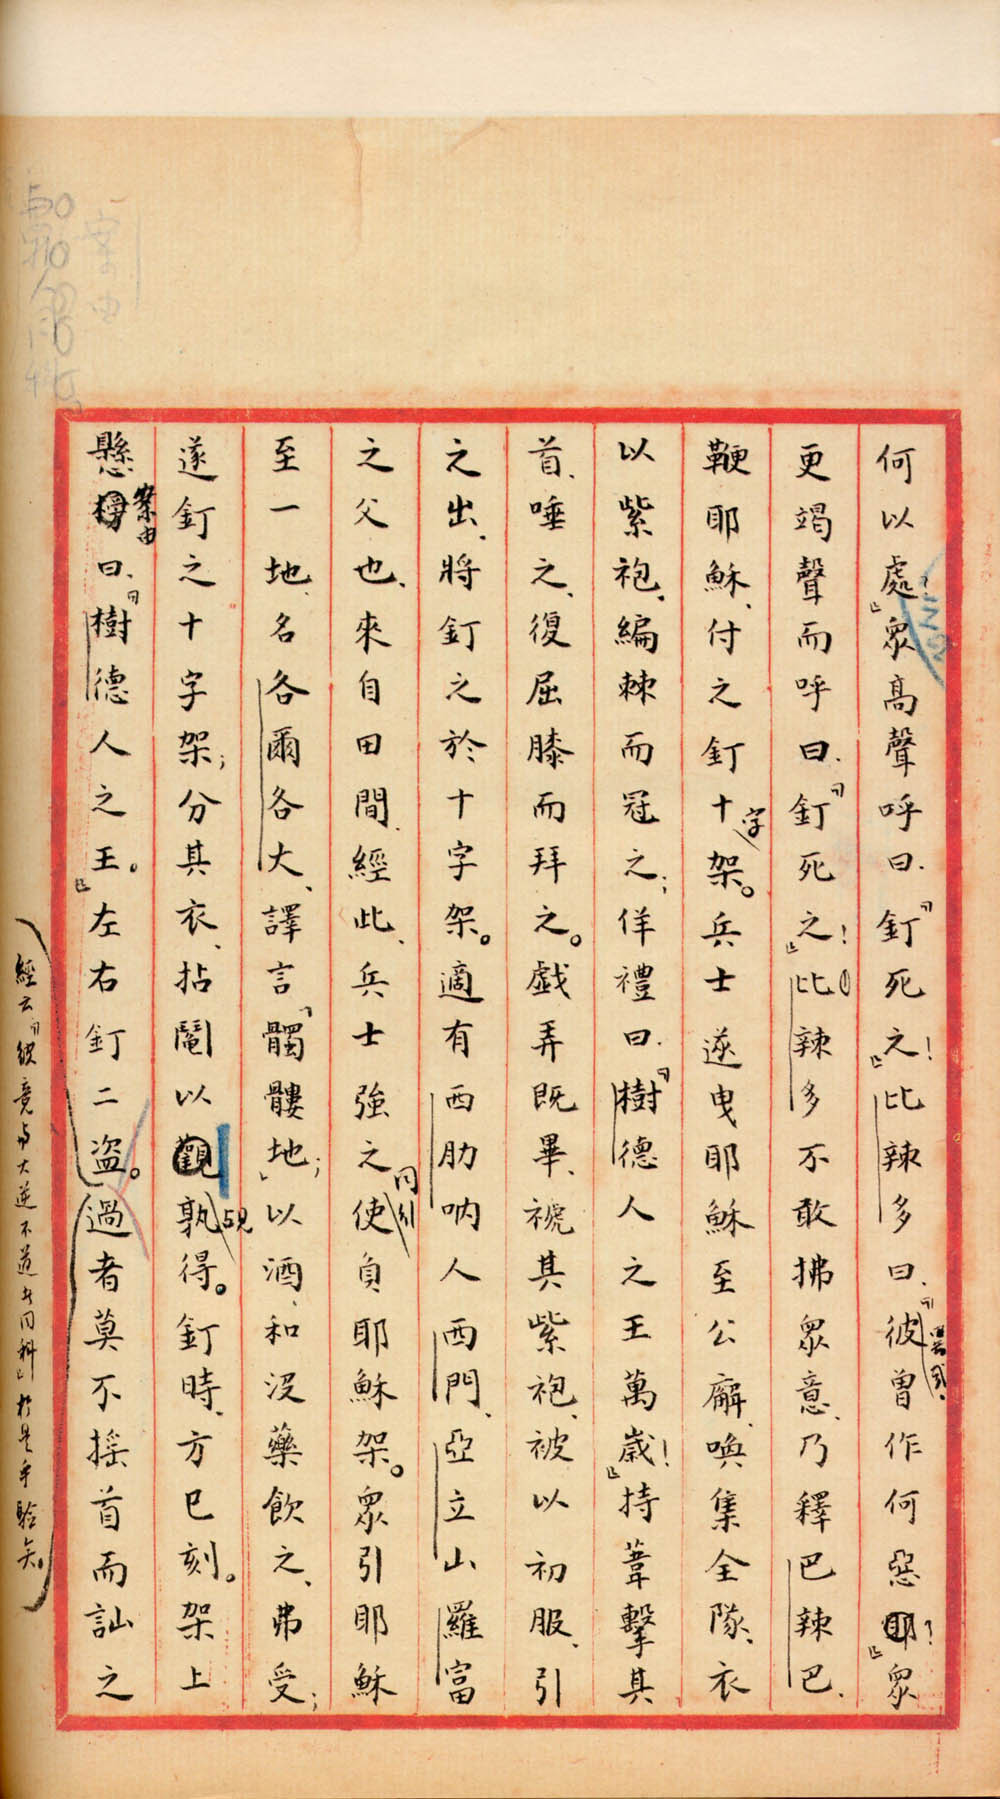 何以處？』衆高聲呼曰、『釘死之！』比辣多曰、『彼曾作何惡耶？』衆
更竭聲而呼曰、『釘死之！』比辣多不敢拂衆意、乃釋巴辣巴、
鞭耶穌、付之釘十字架。兵士遂曳耶穌至公廨、喚集全隊、衣
以紫袍、編棘而冠之；佯禮曰、『樹德人之王萬歲！』持葦擊其
首、唾之、復屈膝而拜之。戲弄既畢、褫其紫袍、被以初服、引
之出、將釘之於十字架。適有西肋吶人西門、亞立山羅富
之父也、來自田間、經此、兵士強之使負耶穌架。衆引耶穌
至一地、名各爾各大、譯言『髑髏地』；以酒和沒藥飲之、弗受；
遂釘之十字架；分其衣、拈鬮以觀孰得。釘時、方巳刻。架上
懸案由曰、『樹德人之王。』左右釘二盜。過者莫不搖首而訕之
經云『彼竟與大逆不道者同科』於是乎驗矣